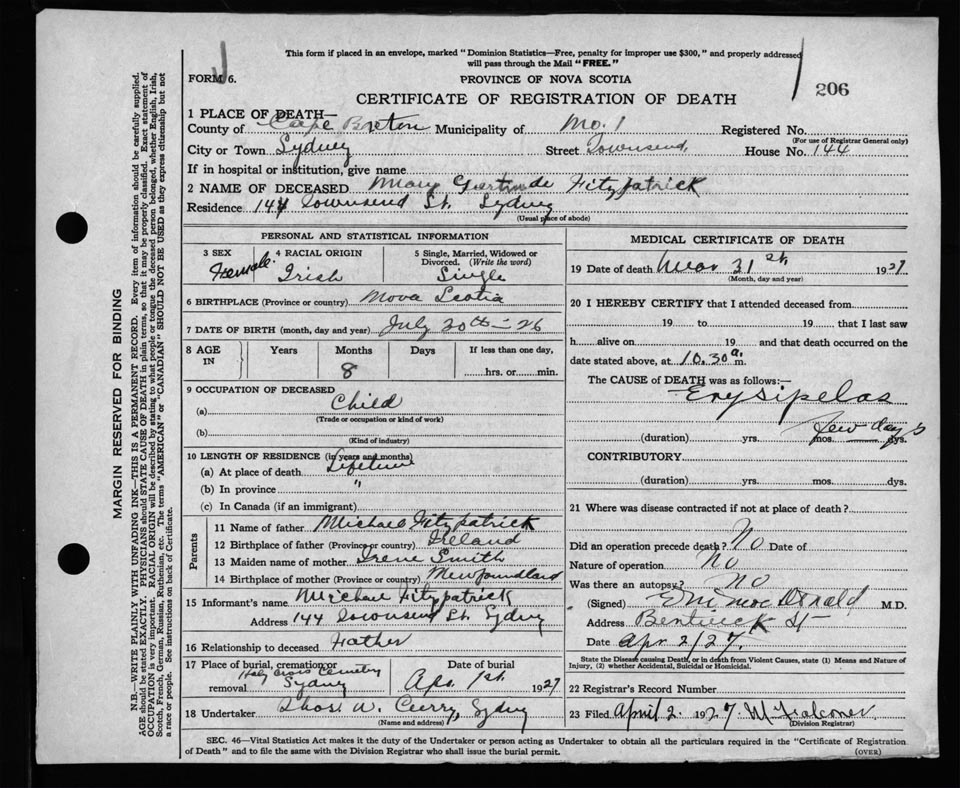 This form if placed in an envelope, marked "Dominion Statistics—Free, penalty for improper use $300," and properly addressed
will pass through the Mail "FREE."
FORM 6.
PROVINCE OF NOVA SCOTIA
206
CERTIFICATE OF REGISTRATION OF DEATH
1 PLACE OF DEATH—
County of Cape Breton Municipality of No. 1 Registered No.
(For use of Registrar General only)
City or Town Sydney Street Townsend, House No. 144
If in hospital or institution, give name
2 NAME OF DECEASED Mary Gertrude Fitzpatrick
Residence 144 Townsend St. Sydney
(Usual place of abode)
PERSONAL AND STATISTICAL INFORMATION
3 SEX Female
4 RACIAL ORIGIN Irish
5 Single, Married, Widowed or Divorced. (Write the word) Single
6 BIRTHPLACE (Province or country) Nova Scotia
7 DATE OF BIRTH (month, day and year) July 20th - 26
8 AGE IN Years Months 8 Days If less than one day, hrs. or min.
9 OCCUPATION OF DECEASED
(a) Child
(Trade or occupation or kind of work)
(b)
(Kind of industry)
10 LENGTH OF RESIDENCE (in years and months)
(a) At place of death Lifetime
(b) In province "
(c) In Canada (if an immigrant)
Parents
11 Name of father Michael Fitzpatrick
12 Birthplace of father (Province or country) Ireland
13 Maiden name of mother Irene Smith
14 Birthplace of mother (Province or country) Newfoundland
15 Informant's name Michael Fitzpatrick
Address 144 Townsend St. Sydney
16 Relationship to deceased Father
17 Place of burial, cremation or removal Holy Cross Cemetery Sydney
Date of burial Apr. 1st. 1927
18 Undertaker Thos. W. Curry, Sydney
(Name and address)
MEDICAL CERTIFICATE OF DEATH
19 Date of death Mar 31st 1927
(Month, day and year)
20 I HEREBY CERTIFY that I attended deceased from
19 to 19 that I last saw
h alive on 19 and that death occurred on the
date stated above, at 10.30 a. m.
The CAUSE of DEATH was as follows:—
Erysipelas
few days
(duration) yrs. mos. dys.
CONTRIBUTORY
(duration) yrs. mos. dys.
21 Where was disease contracted if not at place of death?
Did an operation precede death? No Date of
Nature of operation No
Was there an autopsy? No
(Signed) MacDonald M.D.
Address Bentinck St
Date Apr 2/27.
State the Disease causing Death, or in death from Violent Causes, state (1) Means and Nature of
Injury, (2) whether Accidental, Suicidal or Homicidal.
22 Registrar's Record Number
23 Filed April 2. 1927 M. Falconer
(Division Registrar)
SEC. 46—Vital Statistics Act makes it the duty of the Undertaker or person acting as Undertaker to obtain all the particulars required in the "Certificate of Registration
of Death" and to file the same with the Division Registrar who shall issue the burial permit.
(OVER)
MARGIN RESERVED FOR BINDING
N.B.—WRITE PLAINLY WITH UNFADING INK—THIS IS A PERMANENT RECORD. Every item of information should be carefully supplied.
AGE should be stated EXACTLY. PHYSICIANS should STATE CAUSE OF DEATH in plain terms, so that it may be properly classified. Exact statement of
OCCUPATION is very important. RACIAL ORIGIN will be described by stating to what people or tongue the deceased person belonged, whether English, Irish,
Scotch, French, German, Russian, Ruthenian, etc. The terms "AMERICAN" or "CANADIAN" SHOULD NOT BE USED as they express citizenship but not
a race or people. See instructions on back of Certificate.